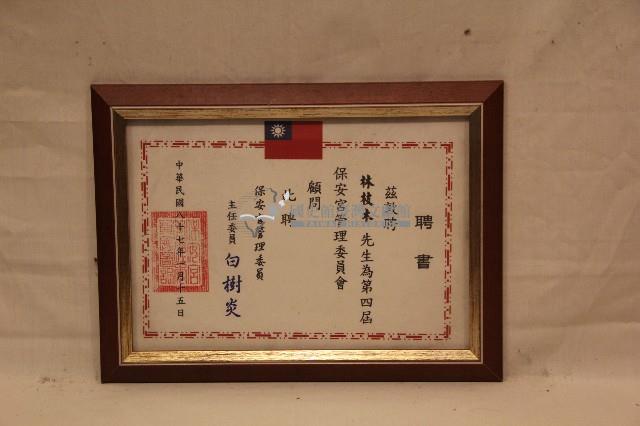 聘書
茲敦聘
林枝木先生為第四屆
保安宮管理委員會
顧問
此聘
保安宮管理委員
主任委員 白樹炎
中華民國八十七年一月十五日
國史館臺灣文獻館